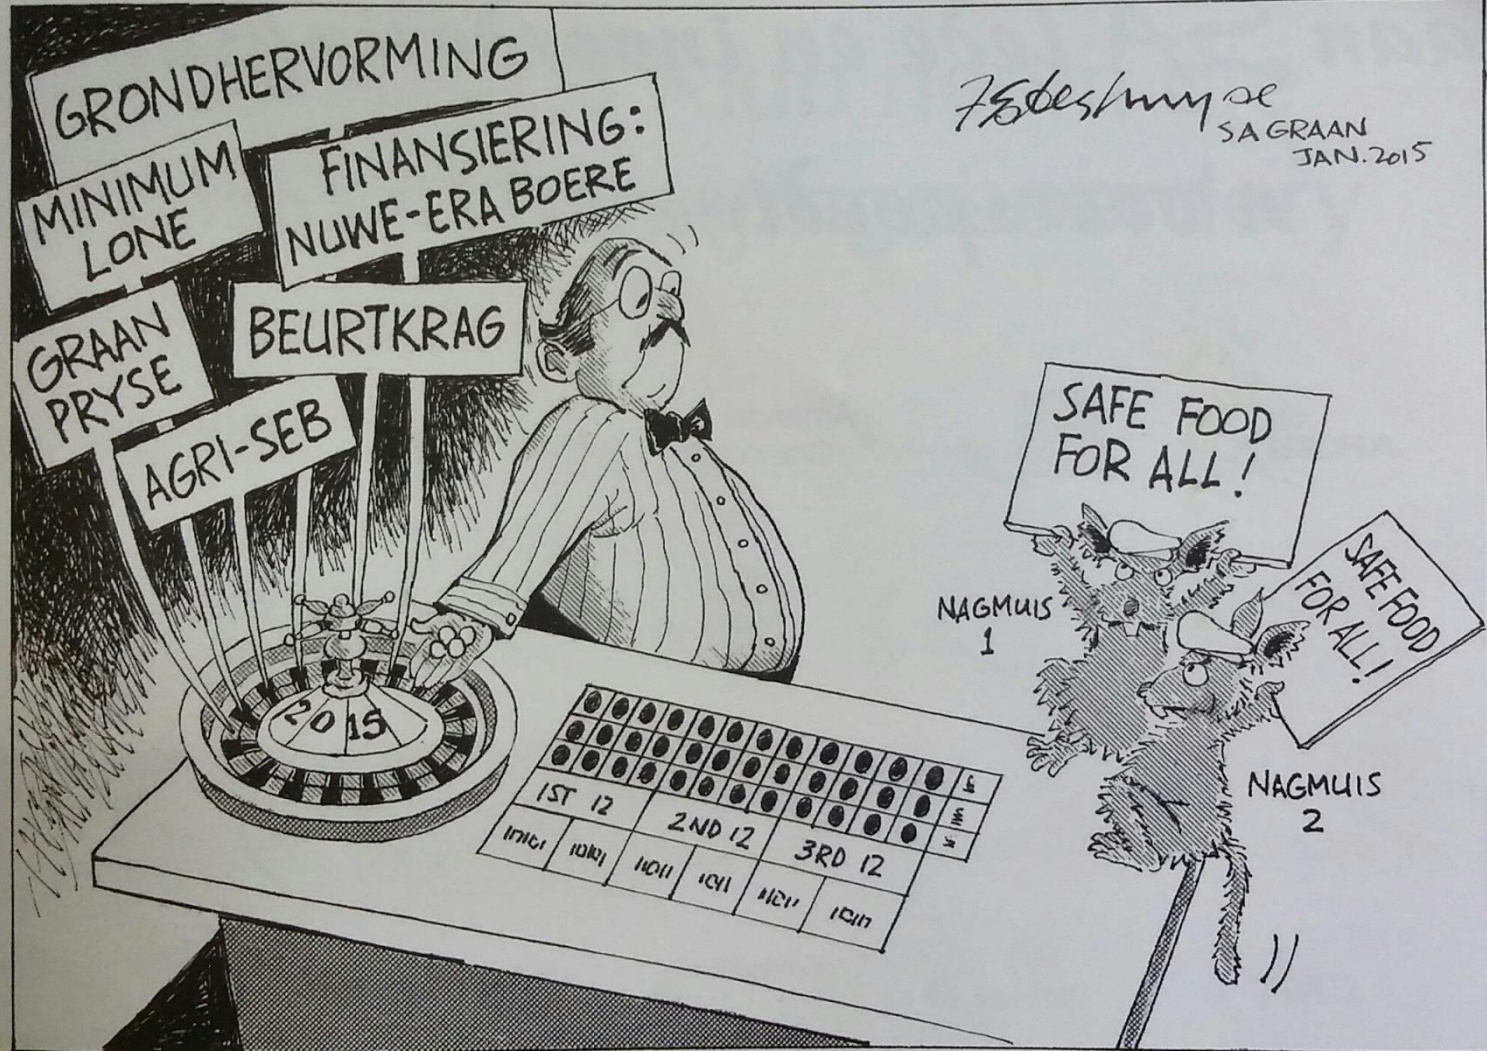 GRONDHERVORMING
MINIMUM
LONE
FINANSIERING:
NUWE-ERA BOERE
GRAAN
PRYSE
BEURTKRAG
AGRI-SEB
SA GRAAN
JAN. 2015
SAFE FOOD
FOR ALL!
SAFE FOOD
FOR ALL!
NAGMUIS
1
NAGMUIS
2
2015
1ST 12
2ND 12
3RD 12